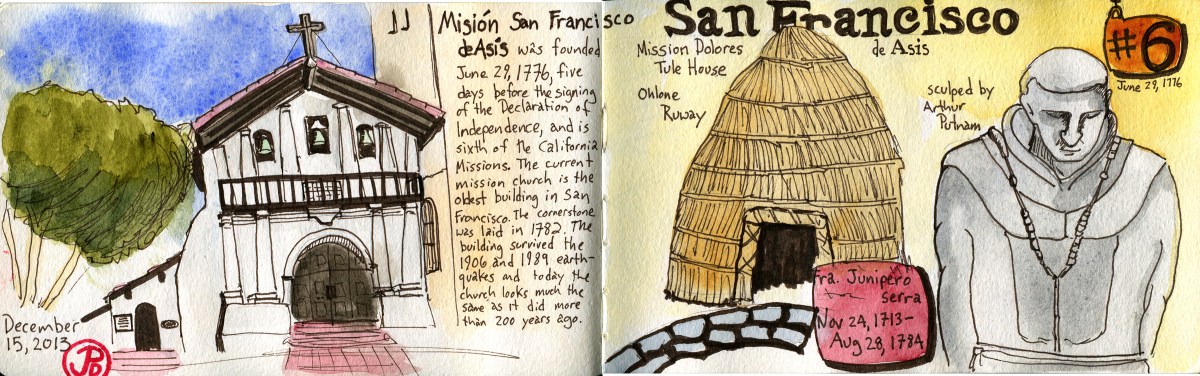 Misión San Francisco
de Asís was founded
June 29, 1776, five
days before the signing
of the Declaration of
Independence, and is
sixth of the California
Missions. The current
mission church is the
oldest building in San
Francisco. The cornerstone
was laid in 1782. The
building survived the
1906 and 1989 earth-
quakes and today the
church looks much the
same as it did more
than 200 years ago.
December
15, 2013
San Francisco
de Asis
Mission Dolores
Tule House
Ohlone
Ruway
#6
June 29, 1776
sculped by
Arthur
Putnam
fra. Junipero
serra
Nov 24, 1713-
Aug 28, 1784